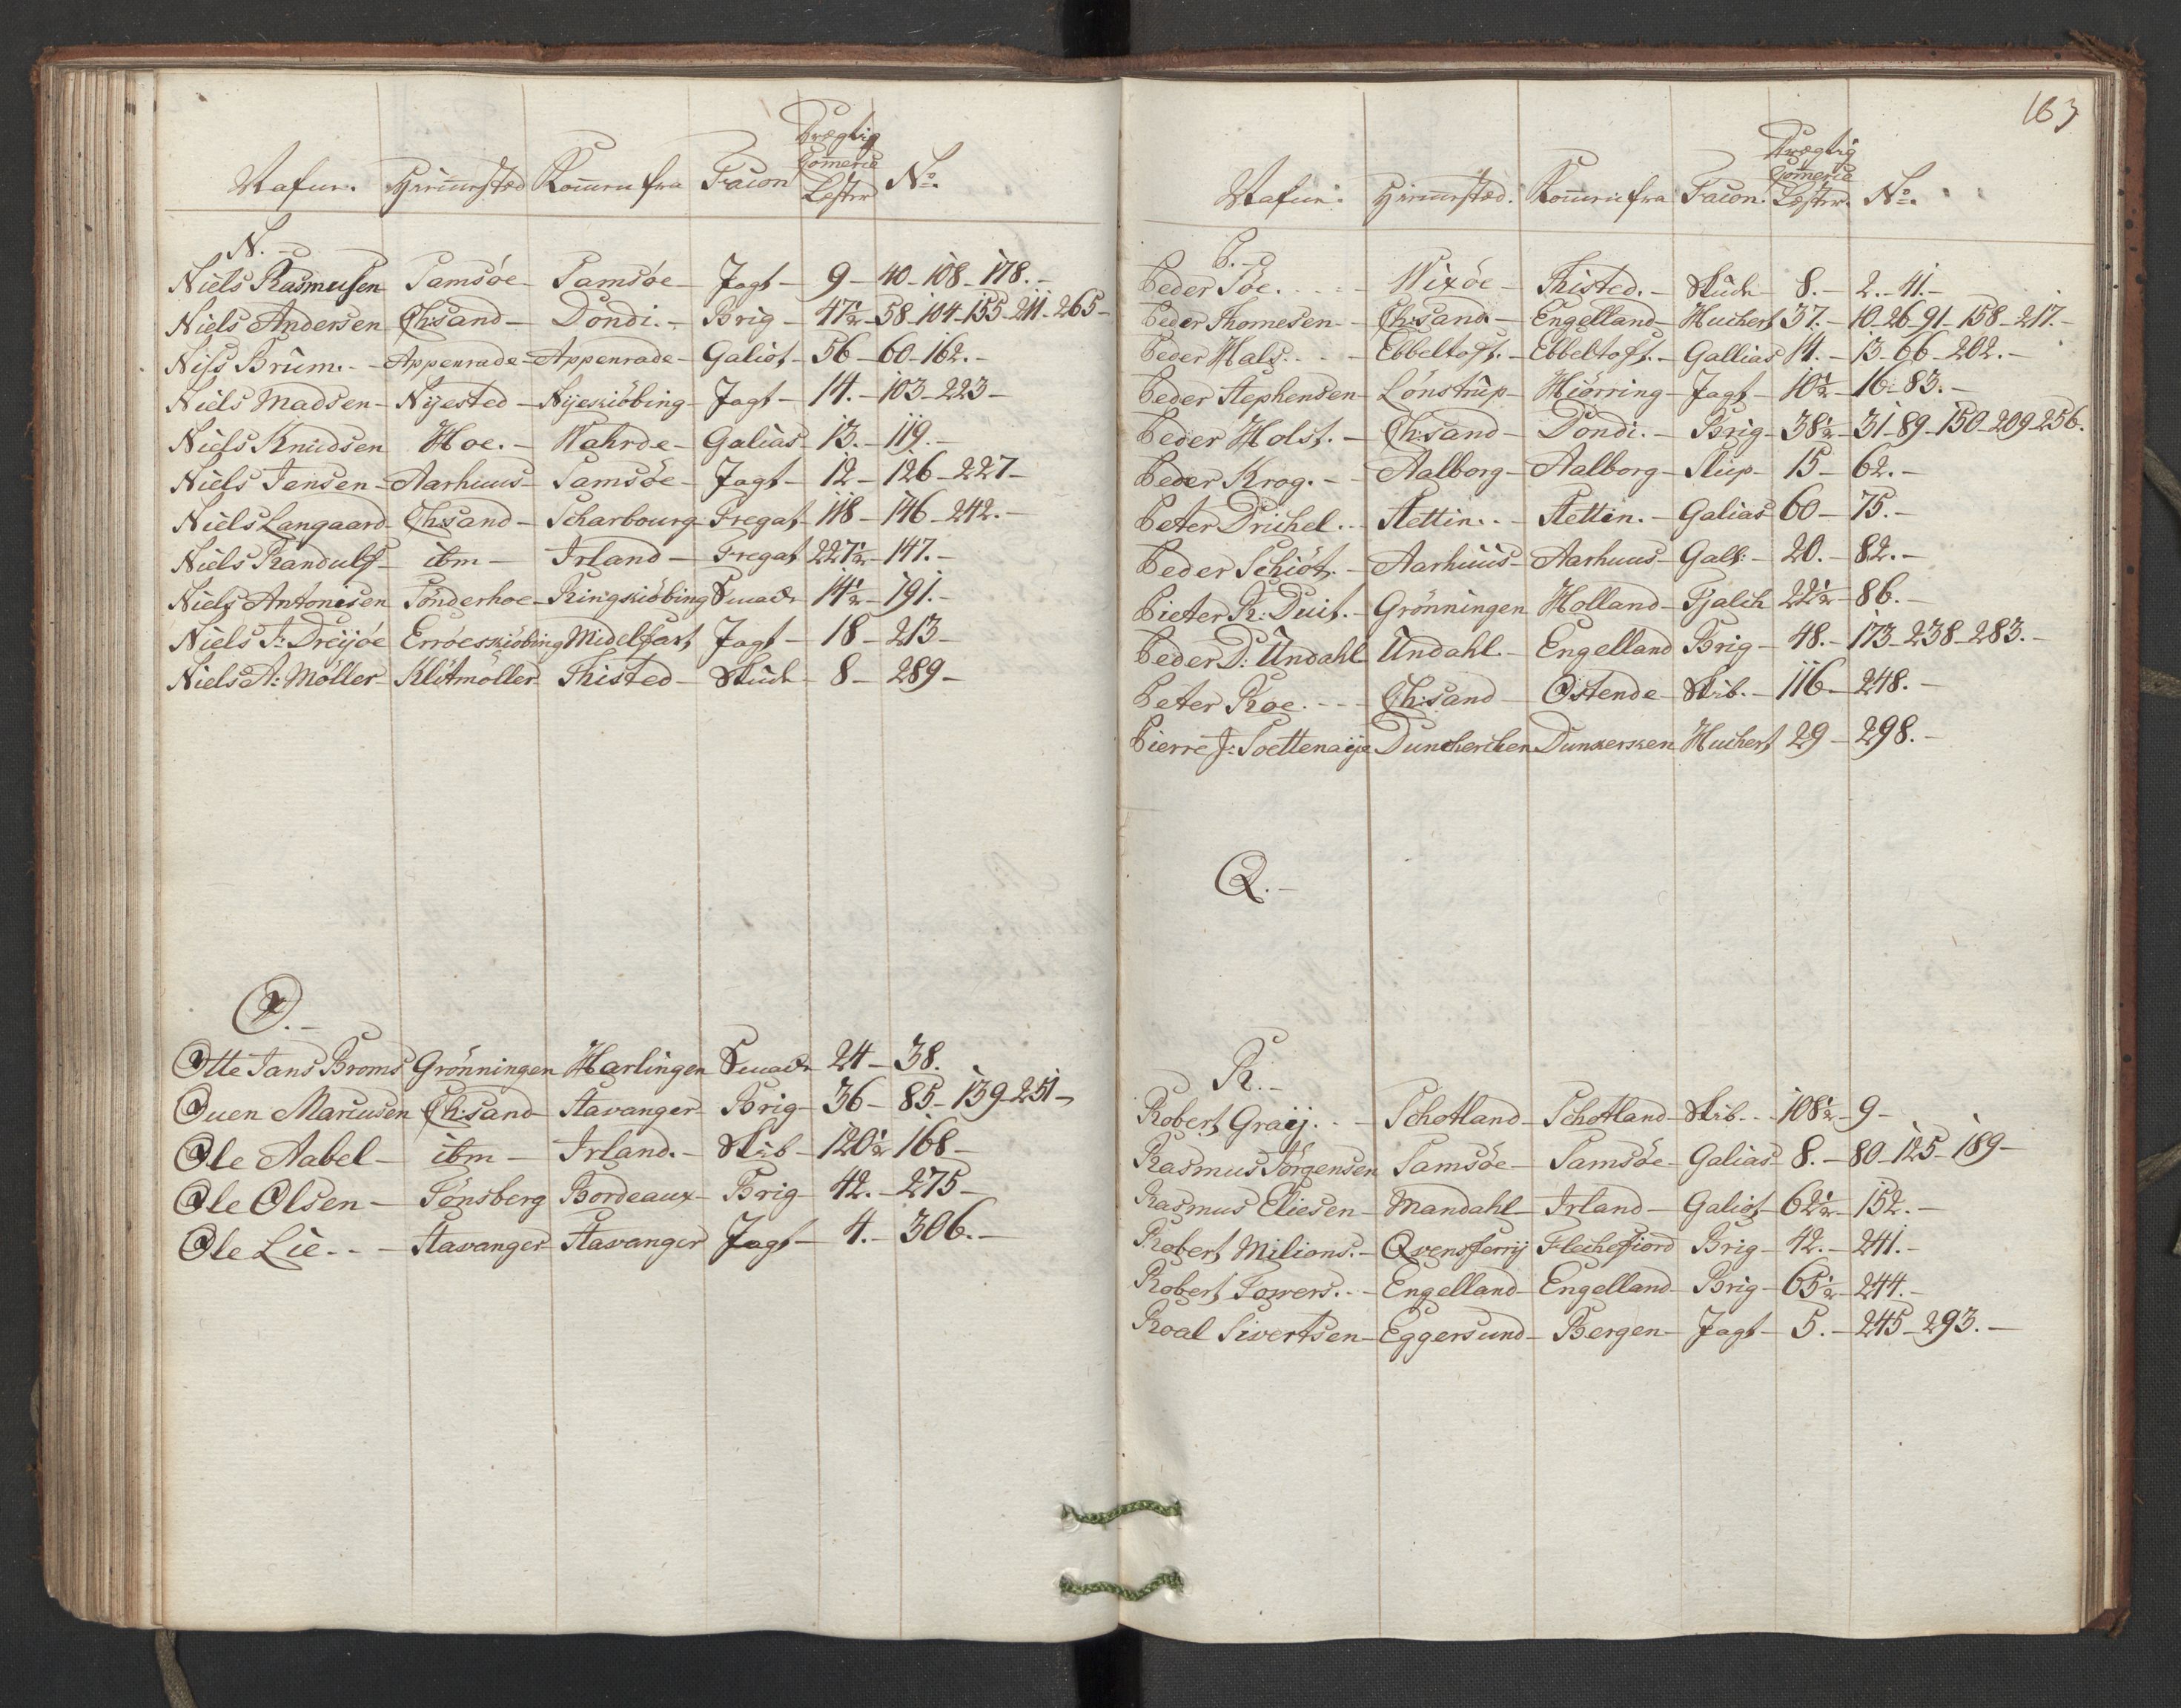 Nafne. Hiemsted Kommen fra Facon Drægtig Commerce Læster No.
N.
Niels Rasmusen Samsöe - Samsöe - Jagt - 9 - 40 - 108 - 178. -
Niels Andersen Ch:sand - Dondi. - Brig - 47½ - 58 - 104 - 155 - 211 - 265 -
Niss Brüm. - Appenrade - Appenrade - Galiot - 56 - 60 - 162. -
Niels Madsen - Nÿested - Nÿeskiöbing - Jagt - 14. - 103 - 223 -
Niels Knudsen Hoe. - Wahrde - Galias - 13. - 119. -
Niels Jensen - Aarhuus - Samsöe - Jagt - 12 - 126 - 227 -
Niels Langaard - Ch:sand - Scharbourg - Fregat - 118 - 146 - 242. -
Niels Randulf - ibm - Irland - Fregat 227½ - 147. -
Niels Antonisen Sönderhoe - Ringkiöbing Smack 14½ - 191. -
Niels J: Dreÿöe Erröeskiöbing Midelfart Jagt - 18 - 213 -
Niels A: Möller - Klitmöller Thisted - Skude - 8 - 289 -
O. -
Otte Jans Broms Grönningen Harlingen Smack 24 - 38.
Ouen Marcusen Ch:sand - Stavanger - Brig - 36 - 85 - 139 - 251 -
Ole Aabel - ibm - Irland. - Skib - 120½ 168 -
Ole Olsen - Tönsberg Bordeaux - Brig - 42. - 275 -
Ole Lie. - - Stavanger - Stavanger Jagt - 4. - 306. -
163
Nafne. Hiemsted. Kommen fra Facon. Drægtig Commerce Læster. No.
P. -
Peder Söe. - - - Wixöe - Thisted. - Skude - 8. - 2. - 41. -
Peder Thomesen - Ch:sand - Engelland - Huckert 37. - 10 - 26 - 91 - 158 - 217. -
Peder Hals. - - - Ebbeltoft. - Ebbeltoft. - Gallias 14. - 13 - 66 - 202. -
Peder Stephensen Lönstrup - Hiörring - Jagt - 10½ - 16 - 83. -
Peder Holst. - Ch:sand - Dondi. - Brig - 38½ - 31 - 89 - 150 - 209 - 256.
Peder Krog. - - Aalborg - Aalborg - Slup - 15 - 62. -
Peter Drichel. - Stettin. - - Stettin. - Galias 60 - 75. -
Peder Schiöt. - Aarhuus - Aarhuus - Gall: - 20. - 82. -
Pieter R: Duit. - Grönningen Holland - Tjalck 22½ - 86. -
Peder D: Undahl Undahl. - Engelland Brig - 48. - 173 - 238 - 283. -
Peter Roe. - - - Ch:sand - Ostende - Skib. - 116 - 248. -
Pierre J: Soettenaÿe Duncherchen Dunkerken Huckert 29 - 298. -
Q. -
R. -
Robert Graÿ. - - Schotland - Schotland - Skib - - 108½ - 9 -
Rasmus Jörgensen Samsöe - Samsöe - Galias - 8. - 80 - 125 - 189 -
Rasmus Eliesen - Mandahl - Irland - Galiot - 62½ - 152. -
Robert Milions. - Qvensferrÿ Flechefiord Brig - 42. - 241. -
Robert Towers. - - Engelland - Engelland - Brig - 65½ - 244. -
Roal Sivertsen - Eggersund - Bergen - Jagt - 5. - 245 - 293. -